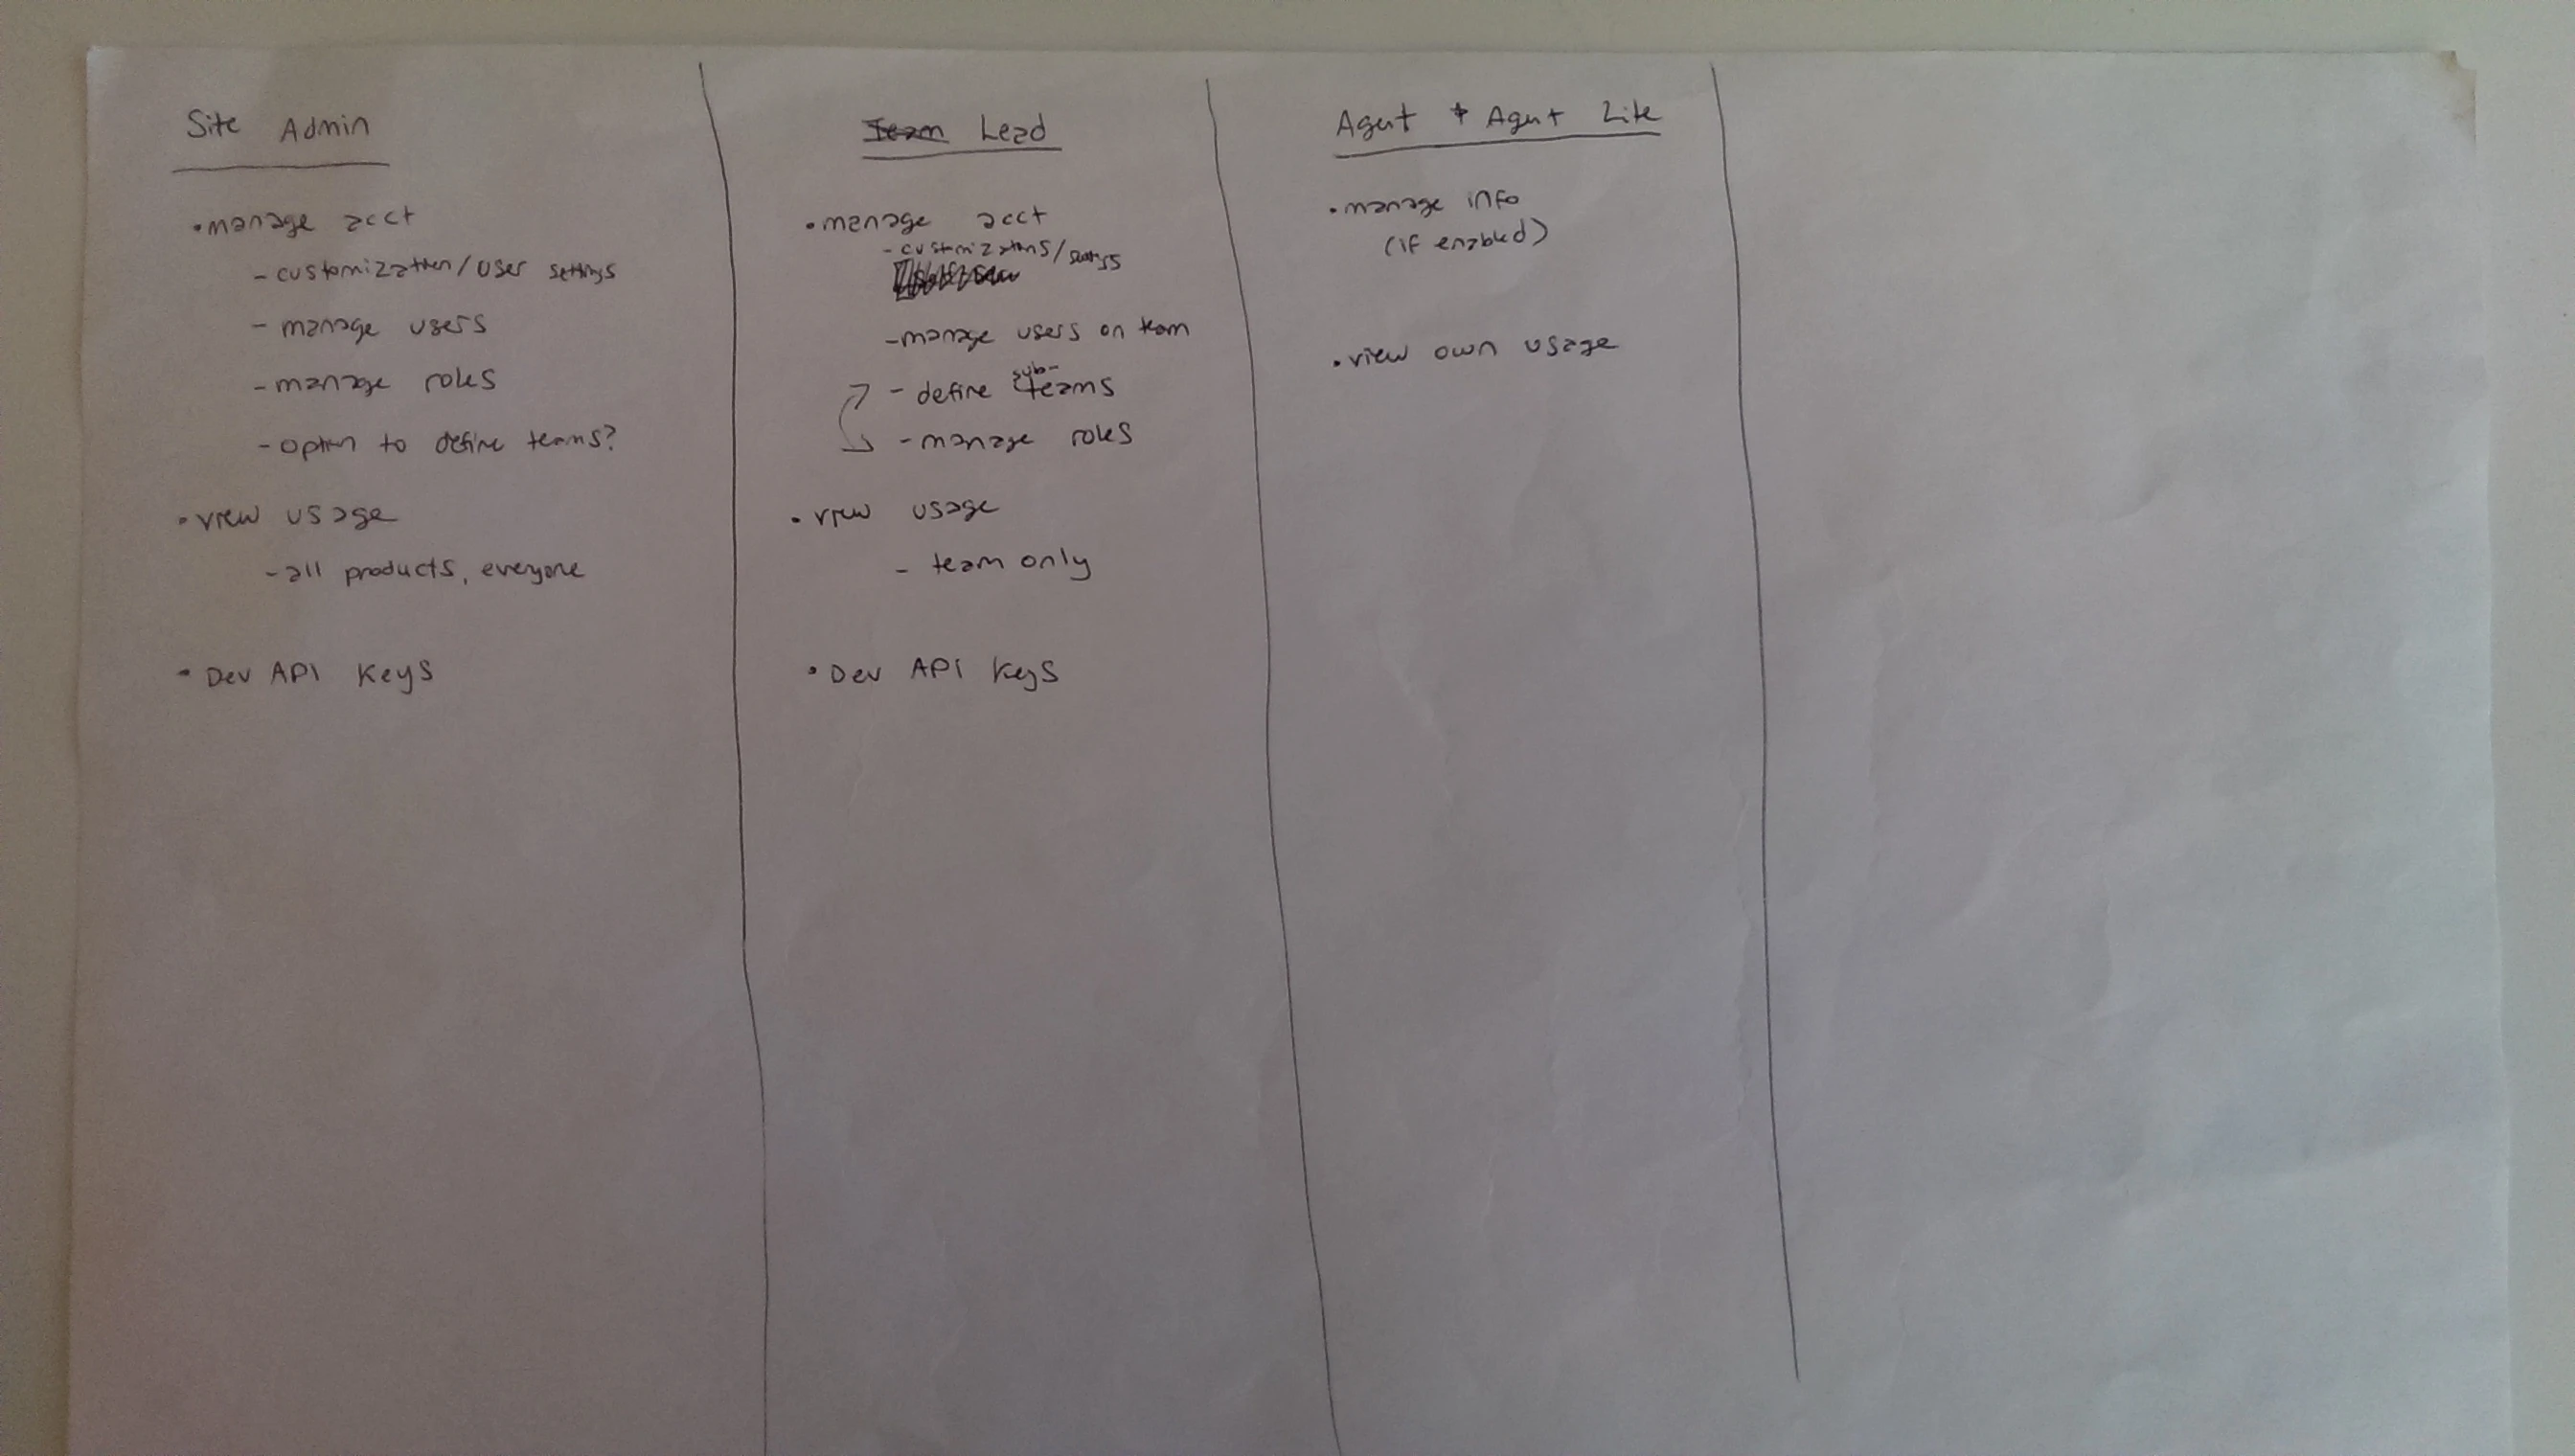 Site Admin
•manage acct
-customization/user settings
- manage users
-manage roles
-option to define teams?
•view usage
-all products, everyone
• Dev API Keys
Team Lead
•manage acct
-customizations/settings
-manage users on team
- define sub-teams
-manage roles
•view usage
- team only
•Dev API Keys
Agent + Agent Lite
•manage info
(if enabled)
•view own usage